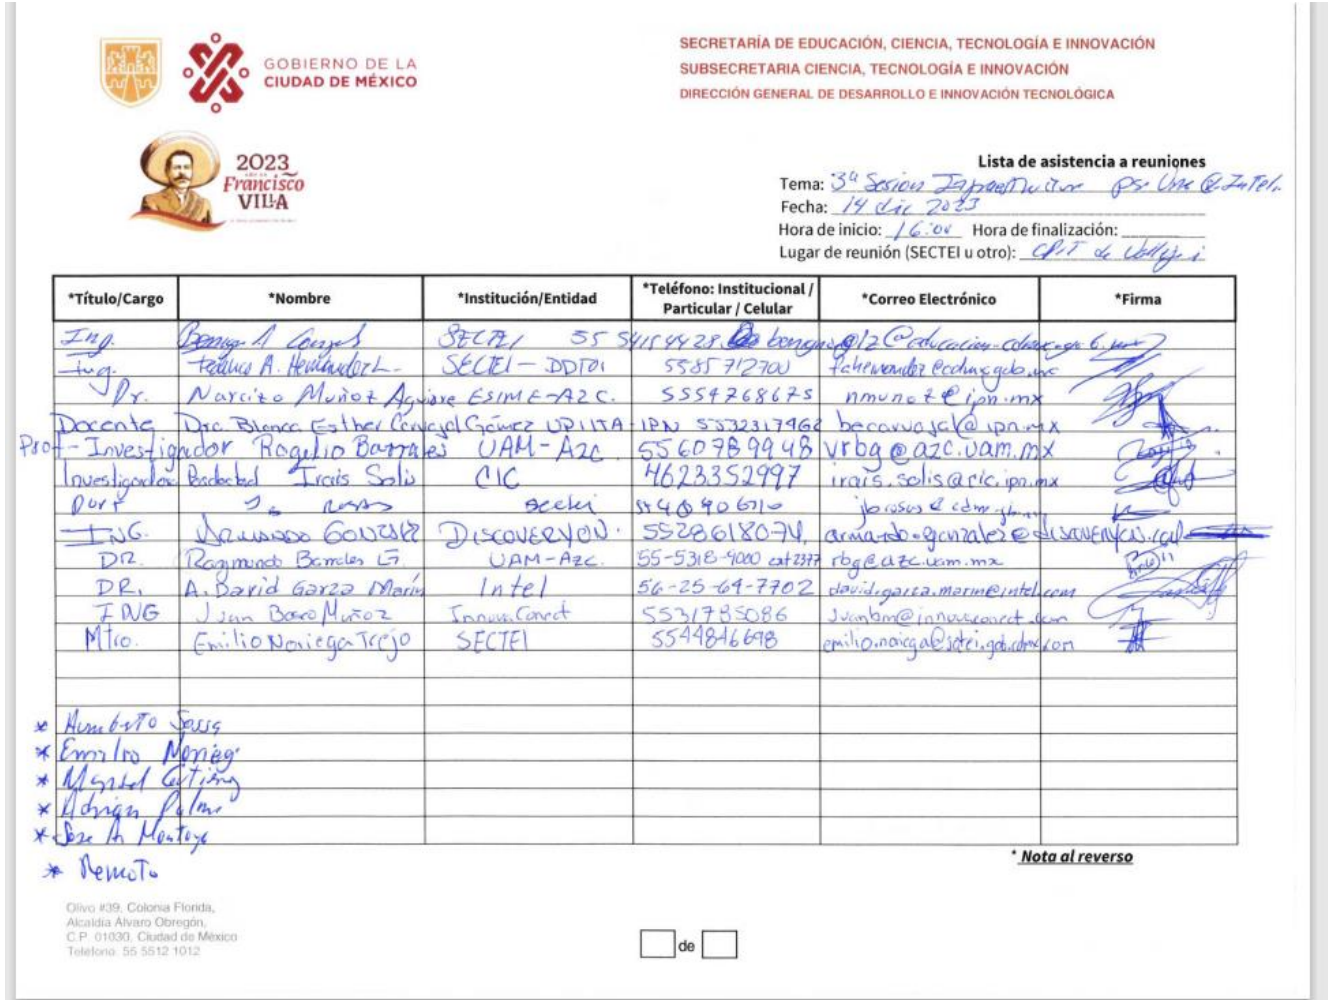 GOBIERNO DE LA
CIUDAD DE MÉXICO
SECRETARÍA DE EDUCACIÓN, CIENCIA, TECNOLOGÍA E INNOVACIÓN
SUBSECRETARIA CIENCIA, TECNOLOGÍA E INNOVACIÓN
DIRECCIÓN GENERAL DE DESARROLLO E INNOVACIÓN TECNOLÓGICA
2023
Francisco
VILLA
Lista de asistencia a reuniones
Tema: 3ª Sesion
Fecha: 14 dic 2023
Hora de inicio: 16:00 Hora de finalización:
Lugar de reunión (SECTEI u otro): de
*Título/Cargo *Nombre *Institución/Entidad *Teléfono: Institucional / Particular / Celular *Correo Electrónico *Firma
Ing. SECTEI 55 54154428
Ing. A. Hernández L. SECTEI - DDTOI 5585712700
Dr. Narcizo Muñoz Aguirre ESIME-AZC. 5554768675 nmunoz@ipn.mx
Docente Dra. Blanca Esther Carvajal Gámez UPIITA-IPN 5532317462 becarvajal@ipn.mx
Prof-Investigador Rogelio Barrales UAM-Azc 5560789948 vrbg@azc.uam.mx
Investigador Irais Solis CIC 4623352997 irais.solis@cic.ipn.mx
rosas sectei
ING. Armando González DISCOVERYON. 5528618074, armando.gonzalez@discoveryon.com
DR. Raymundo Barrales G. UAM-Azc. 55-5318-9000 ext 2377 rbg@azc.uam.mx
DR. A. David Garza Marín Intel 56-25-64-7702 david.garza.marin@intel.com
ING Juan Muñoz InnovaConect 5531785086 juanbm@innovaconect.com
Mtro. Emilio Noriega Trejo SECTEI 5544846698 emilio.noriega@sectei.gob.cdmx.com
* Humberto Sossa
* Emilio Noriega
* Marisol
* Adrian Palma
* Jose A Montoya
* Remoto
* Nota al reverso
Olivo #39, Colonia Florida,
Alcaldía Álvaro Obregón,
C.P. 01030, Ciudad de México
Teléfono: 55 5512 1012
de